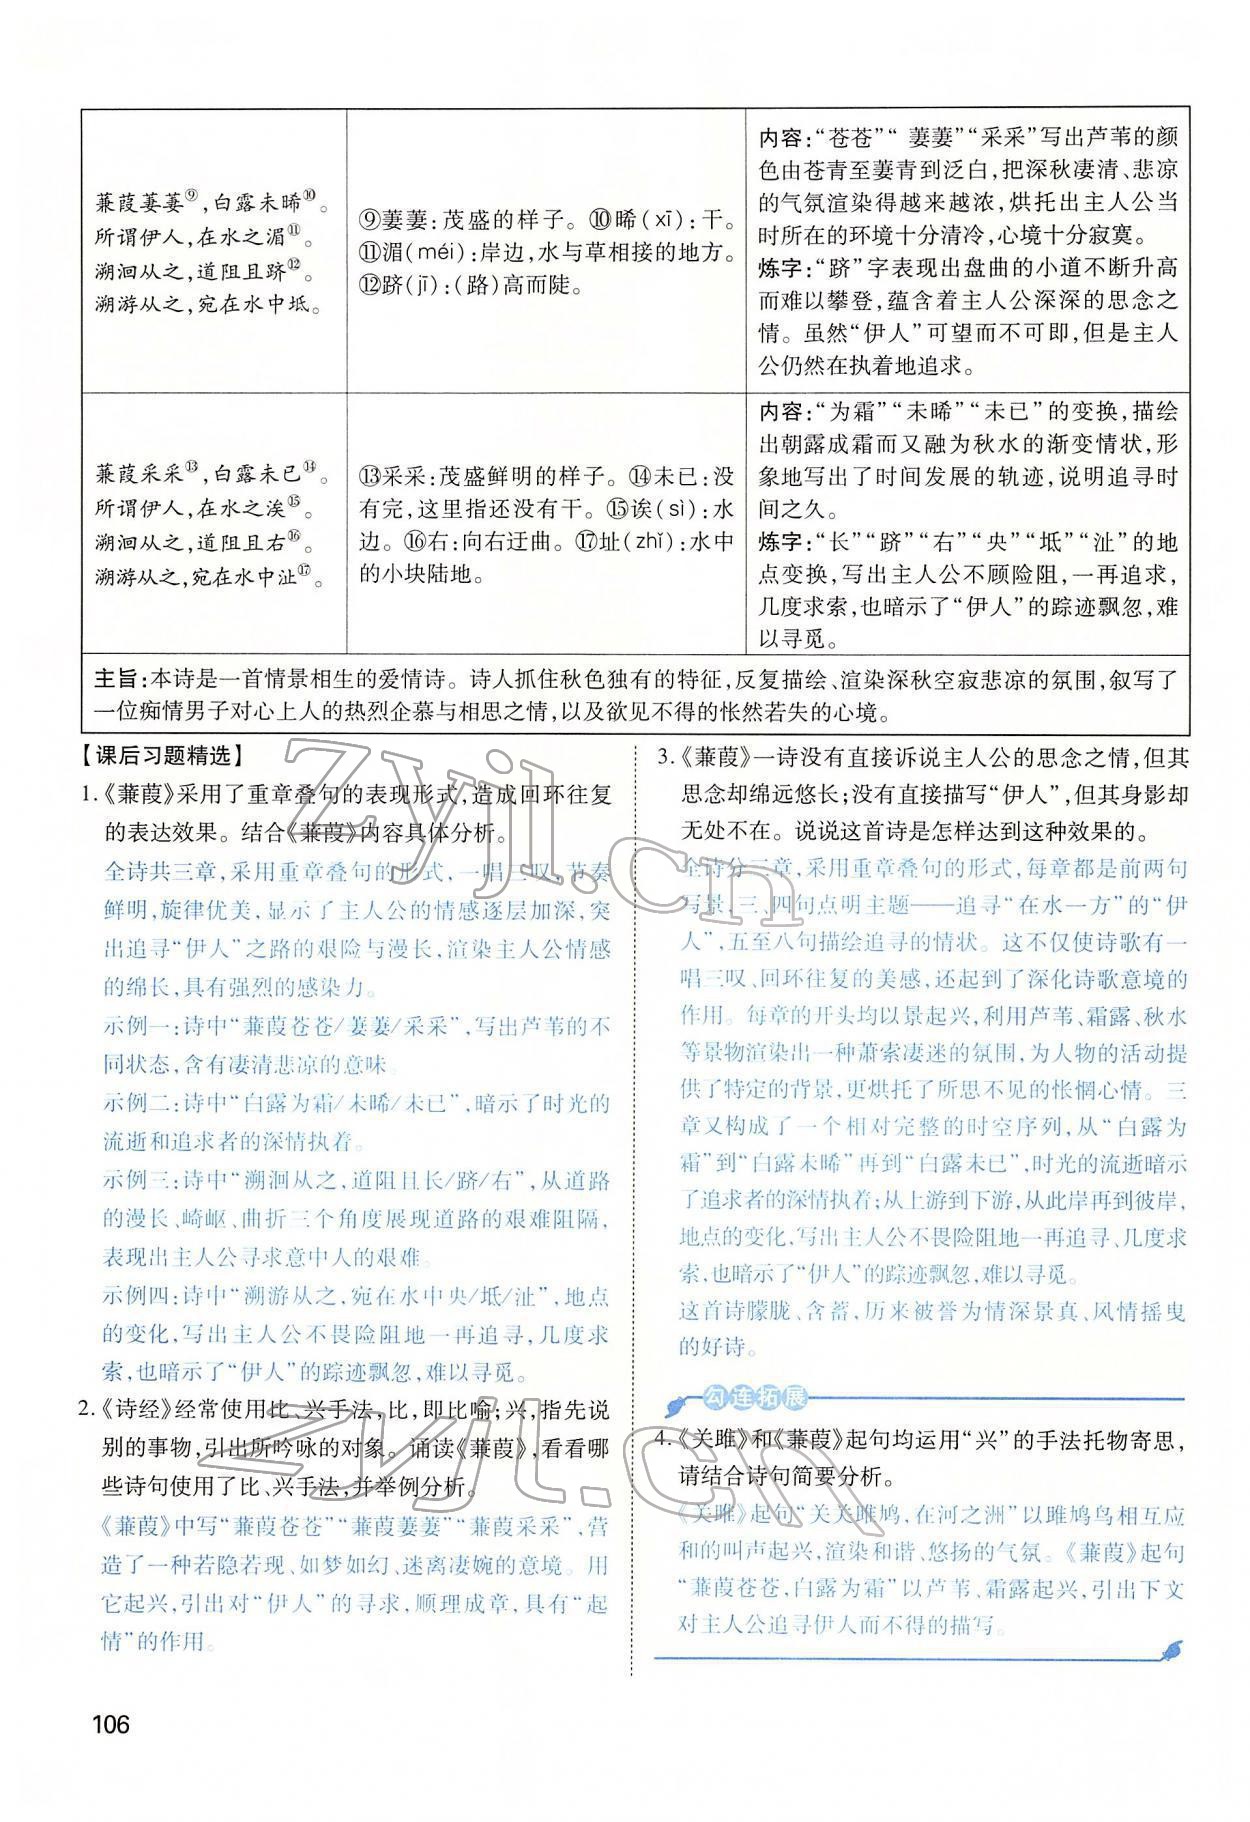 蒹葭萋萋⑨，白露未晞⑩。
所谓伊人，在水之湄⑪。
溯洄从之，道阻且跻⑫。
溯游从之，宛在水中坻。
⑨萋萋：茂盛的样子。⑩晞(xī)：干。
⑪湄(méi)：岸边，水与草相接的地方。
⑫跻(jī)：(路)高而陡。
内容：“苍苍”“ 萋萋”“采采”写出芦苇的颜
色由苍青至萋青到泛白，把深秋凄清、悲凉
的气氛渲染得越来越浓，烘托出主人公当
时所在的环境十分清冷，心境十分寂寞。
炼字：“跻”字表现出盘曲的小道不断升高
而难以攀登，蕴含着主人公深深的思念之
情。虽然“伊人”可望而不可即，但是主人
公仍然在执着地追求。
蒹葭采采⑬，白露未已⑭。
所谓伊人，在水之涘⑮。
溯洄从之，道阻且右⑯。
溯游从之，宛在水中沚⑰。
⑬采采：茂盛鲜明的样子。⑭未已：没
有完，这里指还没有干。⑮涘(sì)：水
边。⑯右：向右迂曲。⑰沚(zhǐ)：水中
的小块陆地。
内容：“为霜”“未晞”“未已”的变换，描绘
出朝露成霜而又融为秋水的渐变情状，形
象地写出了时间发展的轨迹，说明追寻时
间之久。
炼字：“长”“跻”“右”“央”“坻”“沚”的地
点变换，写出主人公不顾险阻，一再追求，
几度求索，也暗示了“伊人”的踪迹飘忽，难
以寻觅。
主旨：本诗是一首情景相生的爱情诗。诗人抓住秋色独有的特征，反复描绘、渲染深秋空寂悲凉的氛围，叙写了
一位痴情男子对心上人的热烈企慕与相思之情，以及欲见不得的怅然若失的心境。
【课后习题精选】
1.《蒹葭》采用了重章叠句的表现形式，造成回环往复
的表达效果。结合《蒹葭》内容具体分析。
全诗共三章，采用重章叠句的形式，一唱三叹，节奏
鲜明，旋律优美，显示了主人公的情感逐层加深，突
出追寻“伊人”之路的艰险与漫长，渲染主人公情感
的绵长，具有强烈的感染力。
示例一：诗中“蒹葭苍苍/萋萋/采采”，写出芦苇的不
同状态，含有凄清悲凉的意味。
示例二：诗中“白露为霜/未晞/未已”，暗示了时光的
流逝和追求者的深情执着。
示例三：诗中“溯洄从之，道阻且长/跻/右”，从道路
的漫长、崎岖、曲折三个角度展现道路的艰难阻隔，
表现出主人公寻求意中人的艰难。
示例四：诗中“溯游从之，宛在水中央/坻/沚”，地点
的变化，写出主人公不畏险阻地一再追寻，几度求
索，也暗示了“伊人”的踪迹飘忽，难以寻觅。
2.《诗经》经常使用比、兴手法，比，即比喻；兴，指先说
别的事物，引出所吟咏的对象。诵读《蒹葭》，看看哪
些诗句使用了比、兴手法，并举例分析。
《蒹葭》中写“蒹葭苍苍”“蒹葭萋萋”“蒹葭采采”，营
造了一种若隐若现、如梦如幻、迷离凄婉的意境。用
它起兴，引出对“伊人”的寻求，顺理成章，具有“起
情”的作用。
3.《蒹葭》一诗没有直接诉说主人公的思念之情，但其
思念却绵远悠长；没有直接描写“伊人”，但其身影却
无处不在。说说这首诗是怎样达到这种效果的。
全诗分三章，采用重章叠句的形式，每章都是前两句
写景，三、四句点明主题——追寻“在水一方”的“伊
人”，五至八句描绘追寻的情状。这不仅使诗歌有一
唱三叹、回环往复的美感，还起到了深化诗歌意境的
作用。每章的开头均以景起兴，利用芦苇、霜露、秋水
等景物渲染出一种萧索凄迷的氛围，为人物的活动提
供了特定的背景，更烘托了所思不见的怅惘心情。三
章又构成了一个相对完整的时空序列，从“白露为
霜”到“白露未晞”再到“白露未已”，时光的流逝暗示
了追求者的深情执着；从上游到下游，从此岸再到彼岸，
地点的变化，写出主人公不畏险阻地一再追寻、几度求
索，也暗示了“伊人”的踪迹飘忽，难以寻觅。
这首诗朦胧、含蓄，历来被誉为情深景真、风情摇曳
的好诗。
勾连拓展
4.《关雎》和《蒹葭》起句均运用“兴”的手法托物寄思，
请结合诗句简要分析。
《关雎》起句“关关雎鸠，在河之洲”以雎鸠鸟相互应
和的叫声起兴，渲染和谐、悠扬的气氛。《蒹葭》起句
“蒹葭苍苍，白露为霜”以芦苇、霜露起兴，引出下文
对主人公追寻伊人而不得的描写。
106
zyjl.cn
zyjl.cn